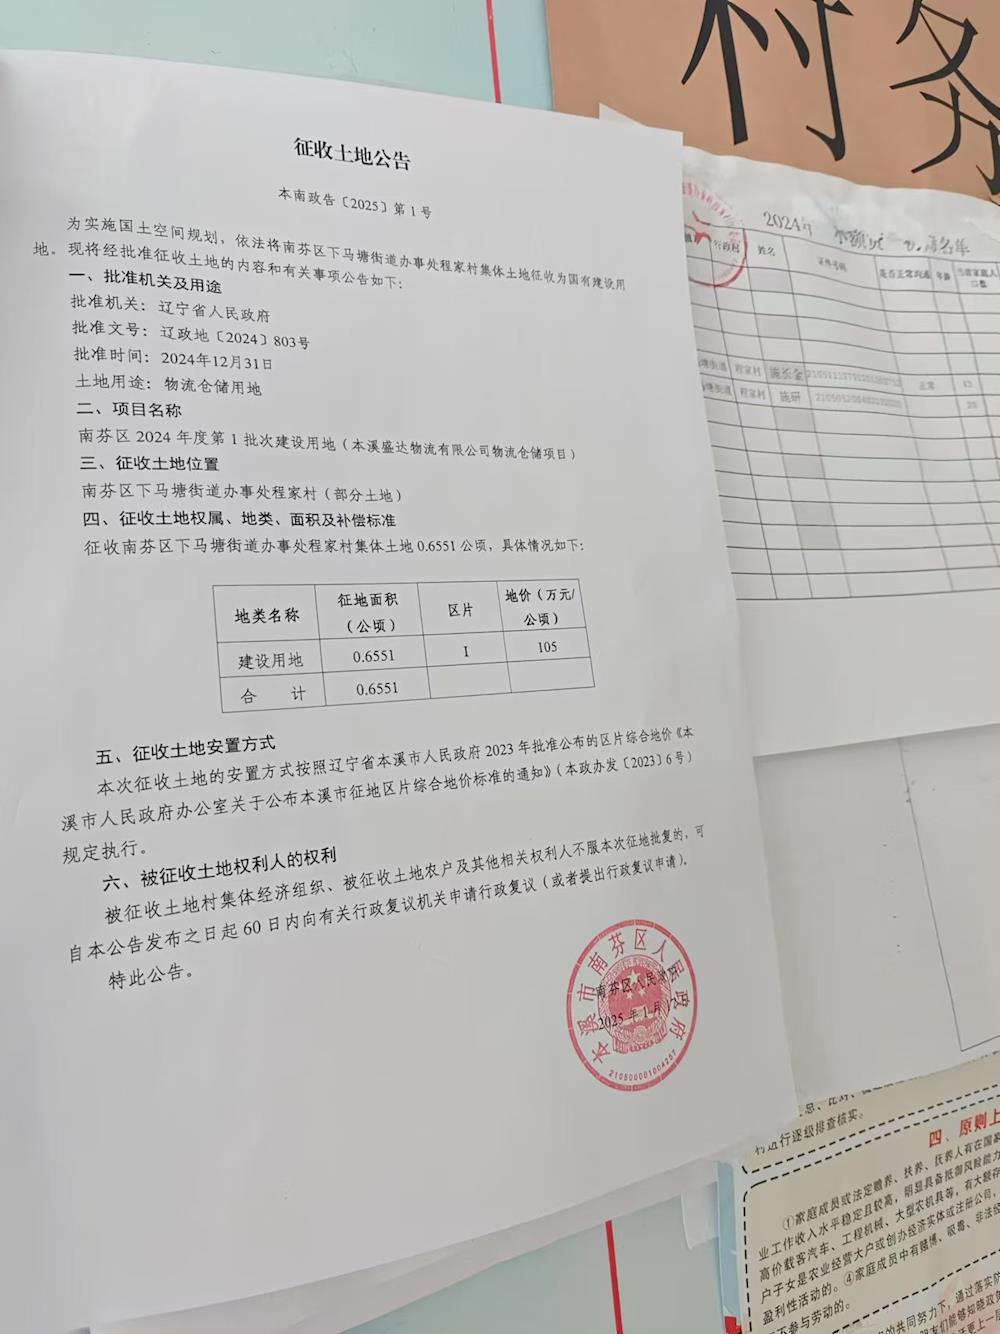 征收土地公告
本南政告〔2025〕第1号
为实施国土空间规划，依法将南芬区下马塘街道办事处程家村集体土地征收为国有建设用
地。现将经批准征收土地的内容和有关事项公告如下：
一、批准机关及用途
批准机关：辽宁省人民政府
批准文号：辽政地〔2024〕803号
批准时间：2024年12月31日
土地用途：物流仓储用地
二、项目名称
南芬区2024年度第1批次建设用地（本溪盛达物流有限公司物流仓储项目）
三、征收土地位置
南芬区下马塘街道办事处程家村（部分土地）
四、征收土地权属、地类、面积及补偿标准
征收南芬区下马塘街道办事处程家村集体土地0.6551公顷，具体情况如下：
地类名称 征地面积（公顷） 区片 地价（万元/公顷）
建设用地 0.6551 I 105
合 计 0.6551
五、征收土地安置方式
本次征收土地的安置方式按照辽宁省本溪市人民政府2023年批准公布的区片综合地价《本
溪市人民政府办公室关于公布本溪市征地区片综合地价标准的通知》（本政办发〔2023〕6号）
规定执行。
六、被征收土地权利人的权利
被征收土地村集体经济组织、被征收土地农户及其他相关权利人不服本次征地批复的，可
自本公告发布之日起60日内向有关行政复议机关申请行政复议（或者提出行政复议申请）。
特此公告。
南芬区人民政府
2025年1月
本溪市南芬区人民政府
210500001004257
村务
2024年
行政村 姓名 证件号码 是否正常沟通 年龄
塘街道 程家村 施长金 正常
塘街道 程家村 施研
行逐级排查核实。
四、原则上
①家庭成员或法定赡养、扶养、抚养人有在国家
业工作收入水平稳定且较高，明显具备抵御风险能力
高价载客汽车、工程机械、大型农机具等，有大额存
户子女是农业经营大户或创办经济实体或注册公司，
盈利性活动的。④家庭成员中有赌博、吸毒、非法经
不参与劳动的。
的共同努力下，通过落实防